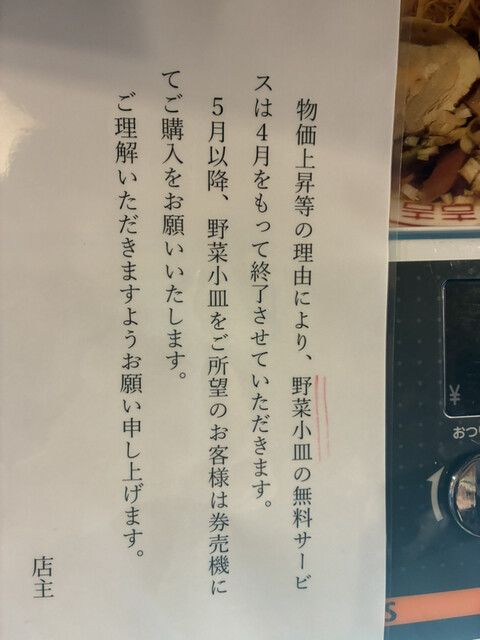 物価上昇等の理由により、野菜小皿の無料サービ
スは4月をもって終了させていただきます。
5月以降、野菜小皿をご所望のお客様は券売機に
てご購入をお願いいたします。
ご理解いただきますようお願い申し上げます。
店主
¥
おつり